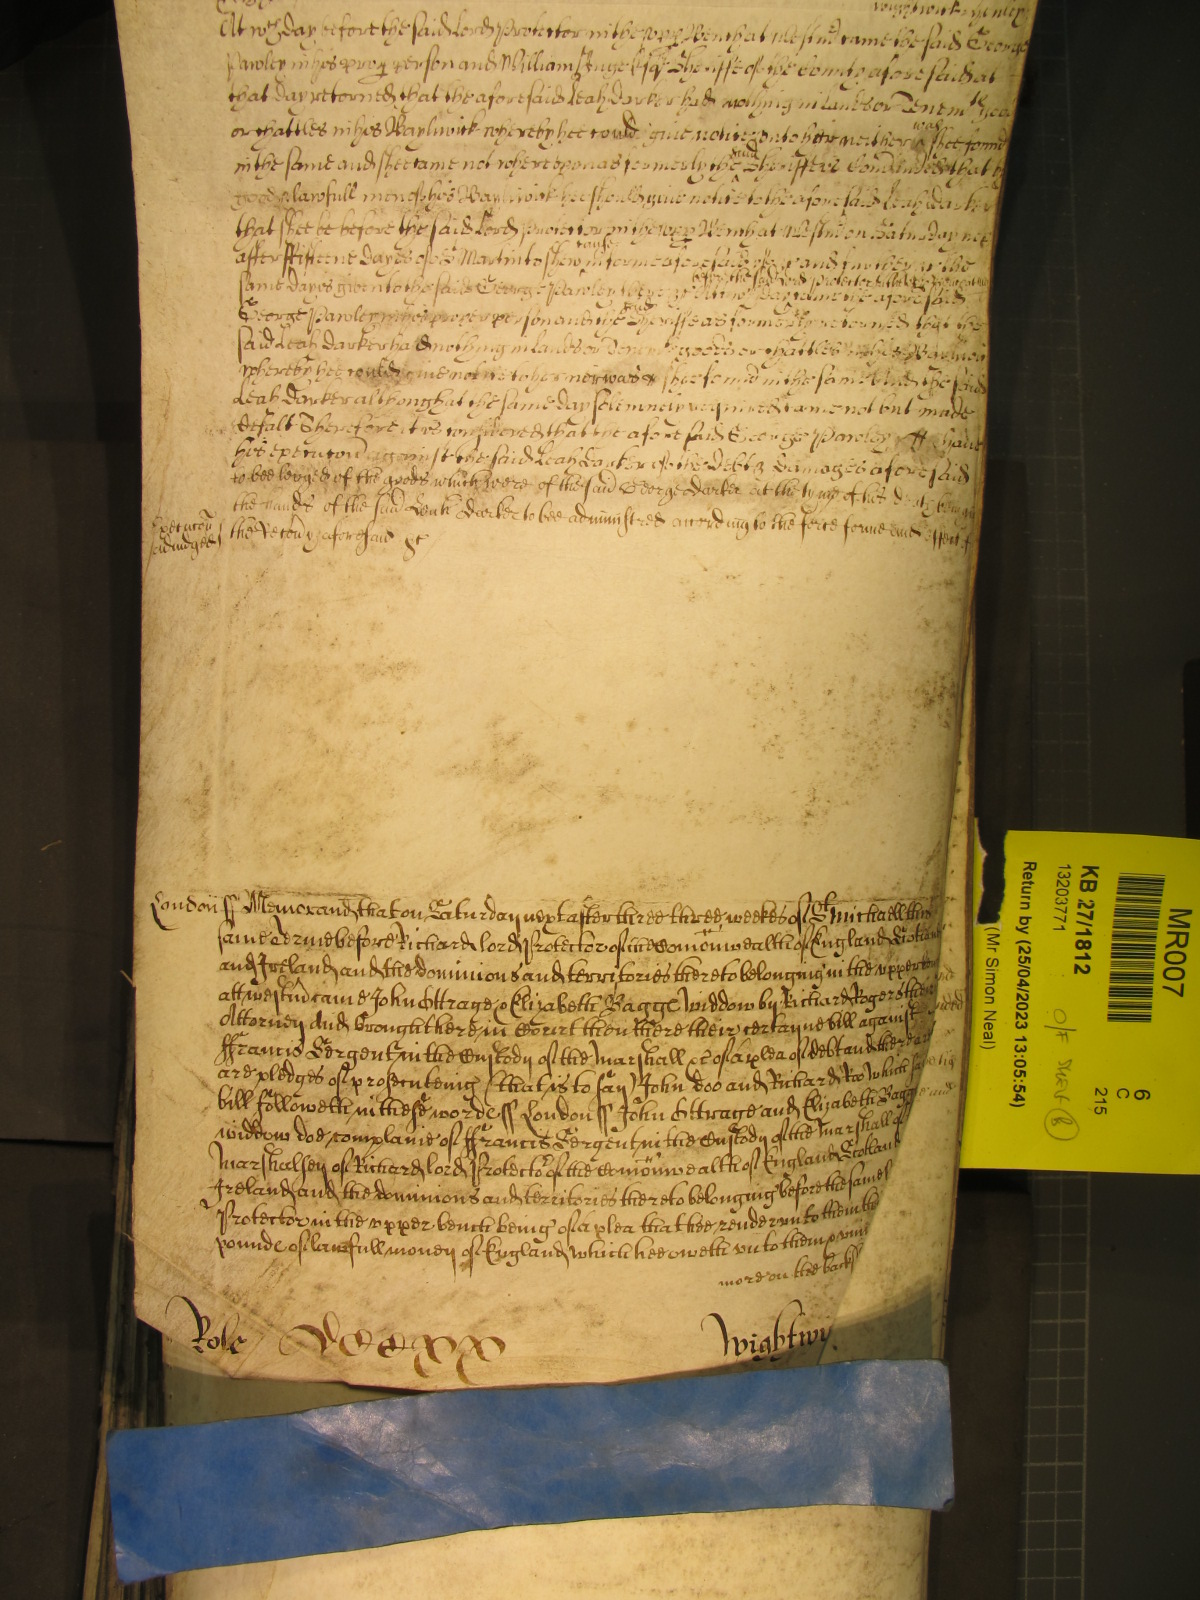 At w^ch day before the said Lord Protector in the upp Bench at Westm̃ came the said George
Pawley in his prop person and William Esq^r Sheriffe of the County aforesaid at
that day retorned that the aforesaid Leah Darker had nothing in lands or Tenem^ts goods
or chattles in his Bayliwick whereby hee could give notice unto her neither was shee found
in the same and shee came not whereupon as formerly the said Sheriffe is Comanded that by
good & lawfull men of his Bayliwick hee should give notice to the aforesaid Leah Darker
that shee be before the said Lord Protector in the upp Bench at Westm̃ on Saturday next
after Fifteene dayes of S^t Martin to shew cause in forme aforesaid if &c and further &c the
same day is given to the said George Pawley there &c At w^ch day before the said Lord Protector came the aforesaid
George Pawley in his proper person and the said Sheriffe as formerly retorned that the
said Leah Darker had nothing in lands or Tenem^ts goods or chattles in his Bayliwick
whereby hee could give notice to her nor was shee found in the same And the said
Leah Darker although at the same day solemnely required came not but made
defalt Therefore it is considered that the aforesaid George Pawley have
his execution against the said Leah Darker of the Debt & Damages aforesaid
to bee levyed of the goods which were of the said George Darker at the tyme of his death being in
the hands of the said Leah Darker to bee administred according to the force forme and effect of
the Recovery aforesaid &c
Execucon
adiudged
London ss Memorand that on Saturday next after three three weekes of S^t Michaell this
same Terme before Richard lord Protector of the Comonwealth of England Scotland
and Ireland and the dominions and territories thereto belonging in the upper bench
att westm̃ came John Ottrage & Elizabeth Bagge widdow by Richard Rogers their
Attorney And brought here in Court then there their certayne bill against
ffrancis Sergent in the Custody of the Marshall &c of a plea of debt and there
are pledges of prosecuteing That is to say John doo and Richard Roo which said
bill followeth in these words ss London ss John Ottrage and Elizabeth Bagge
widdow doe complaine of ffrancis Sergent in the Custody of the Marshall of
Marshalsey of Richard lord Protecto^r of the Comonwealth of England Scotland
Ireland and the dominions and territories thereto belonging before the same
Protector in the upper bench being of a plea that hee render unto them
pounds of lawfull money of England which hee oweth unto them &
more on the back
Role DCCCXX
Wightwi
MR007
KB 27/1812
13203771
6
C
215
O/F
Return by (25/04/2023 13:05:54)
(Mr Simon Neal)